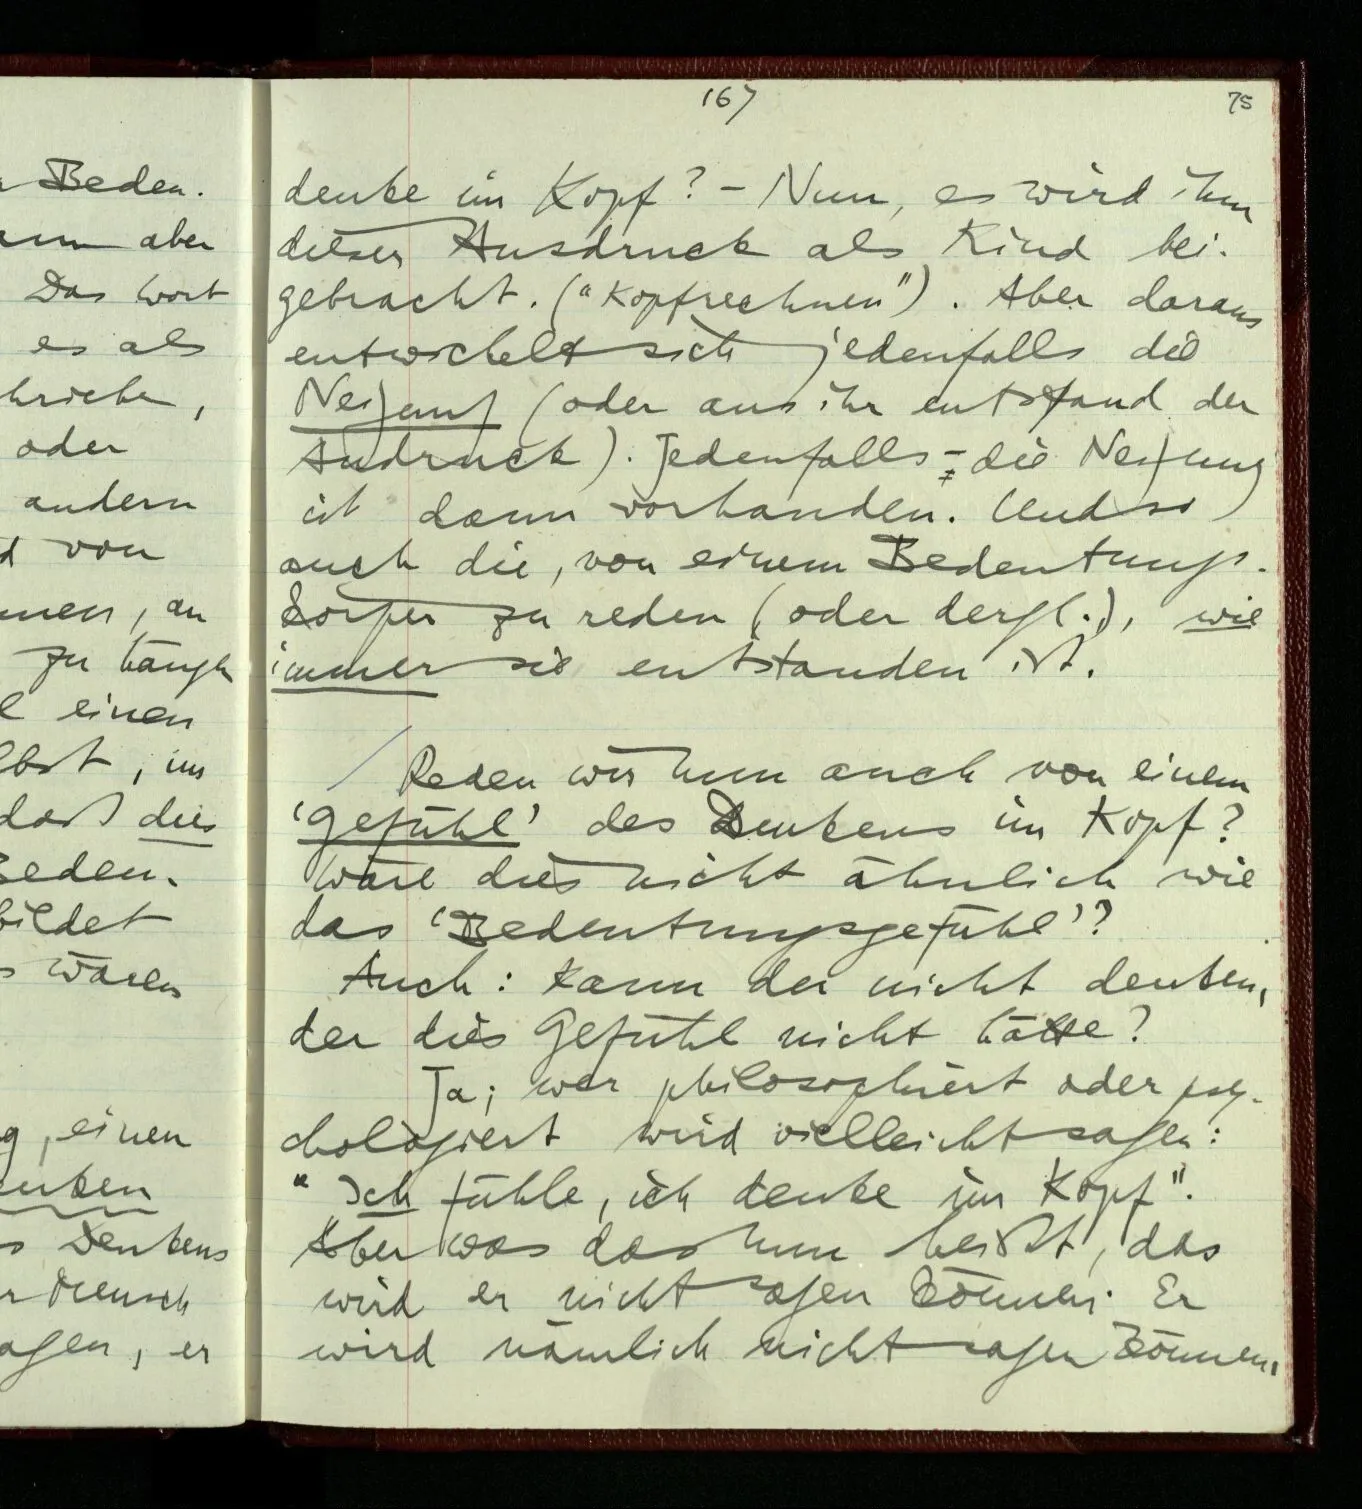 167
75
denke im Kopf? – Nun, es wird ihm
dieser Ausdruck als Kind bei-
gebracht. ("Kopfrechnen"). Aber daraus
entwickelt sich jedenfalls die
Neigung (oder aus ihr entstand der
Ausdruck). Jedenfalls – die Neigung
ist dann vorhanden. Und so
auch die, von einem Bedeutungs-
körper zu reden (oder dergl.), wie
immer sie entstanden ist.
/ Reden wir nun auch von einem
'Gefühl' des Denkens im Kopf?
Wäre dies nicht ähnlich wie
das 'Bedeutungsgefühl'?
Auch: Kann der nicht denken,
der dies Gefühl nicht hätte?
Ja; wer philosophiert oder psy-
chologiert wird vielleicht sagen:
"Ich fühle, ich denke im Kopf".
Aber was das nun heißt, das
wird er nicht sagen können. Er
wird nämlich nicht sagen können,
Beden.
aber
Das Wort
es als
oder
andern
von
an
zu hängen
einen
lbst, im
daß dies
Beden.
bildet
wären
einen
Denkens
Mensch
er